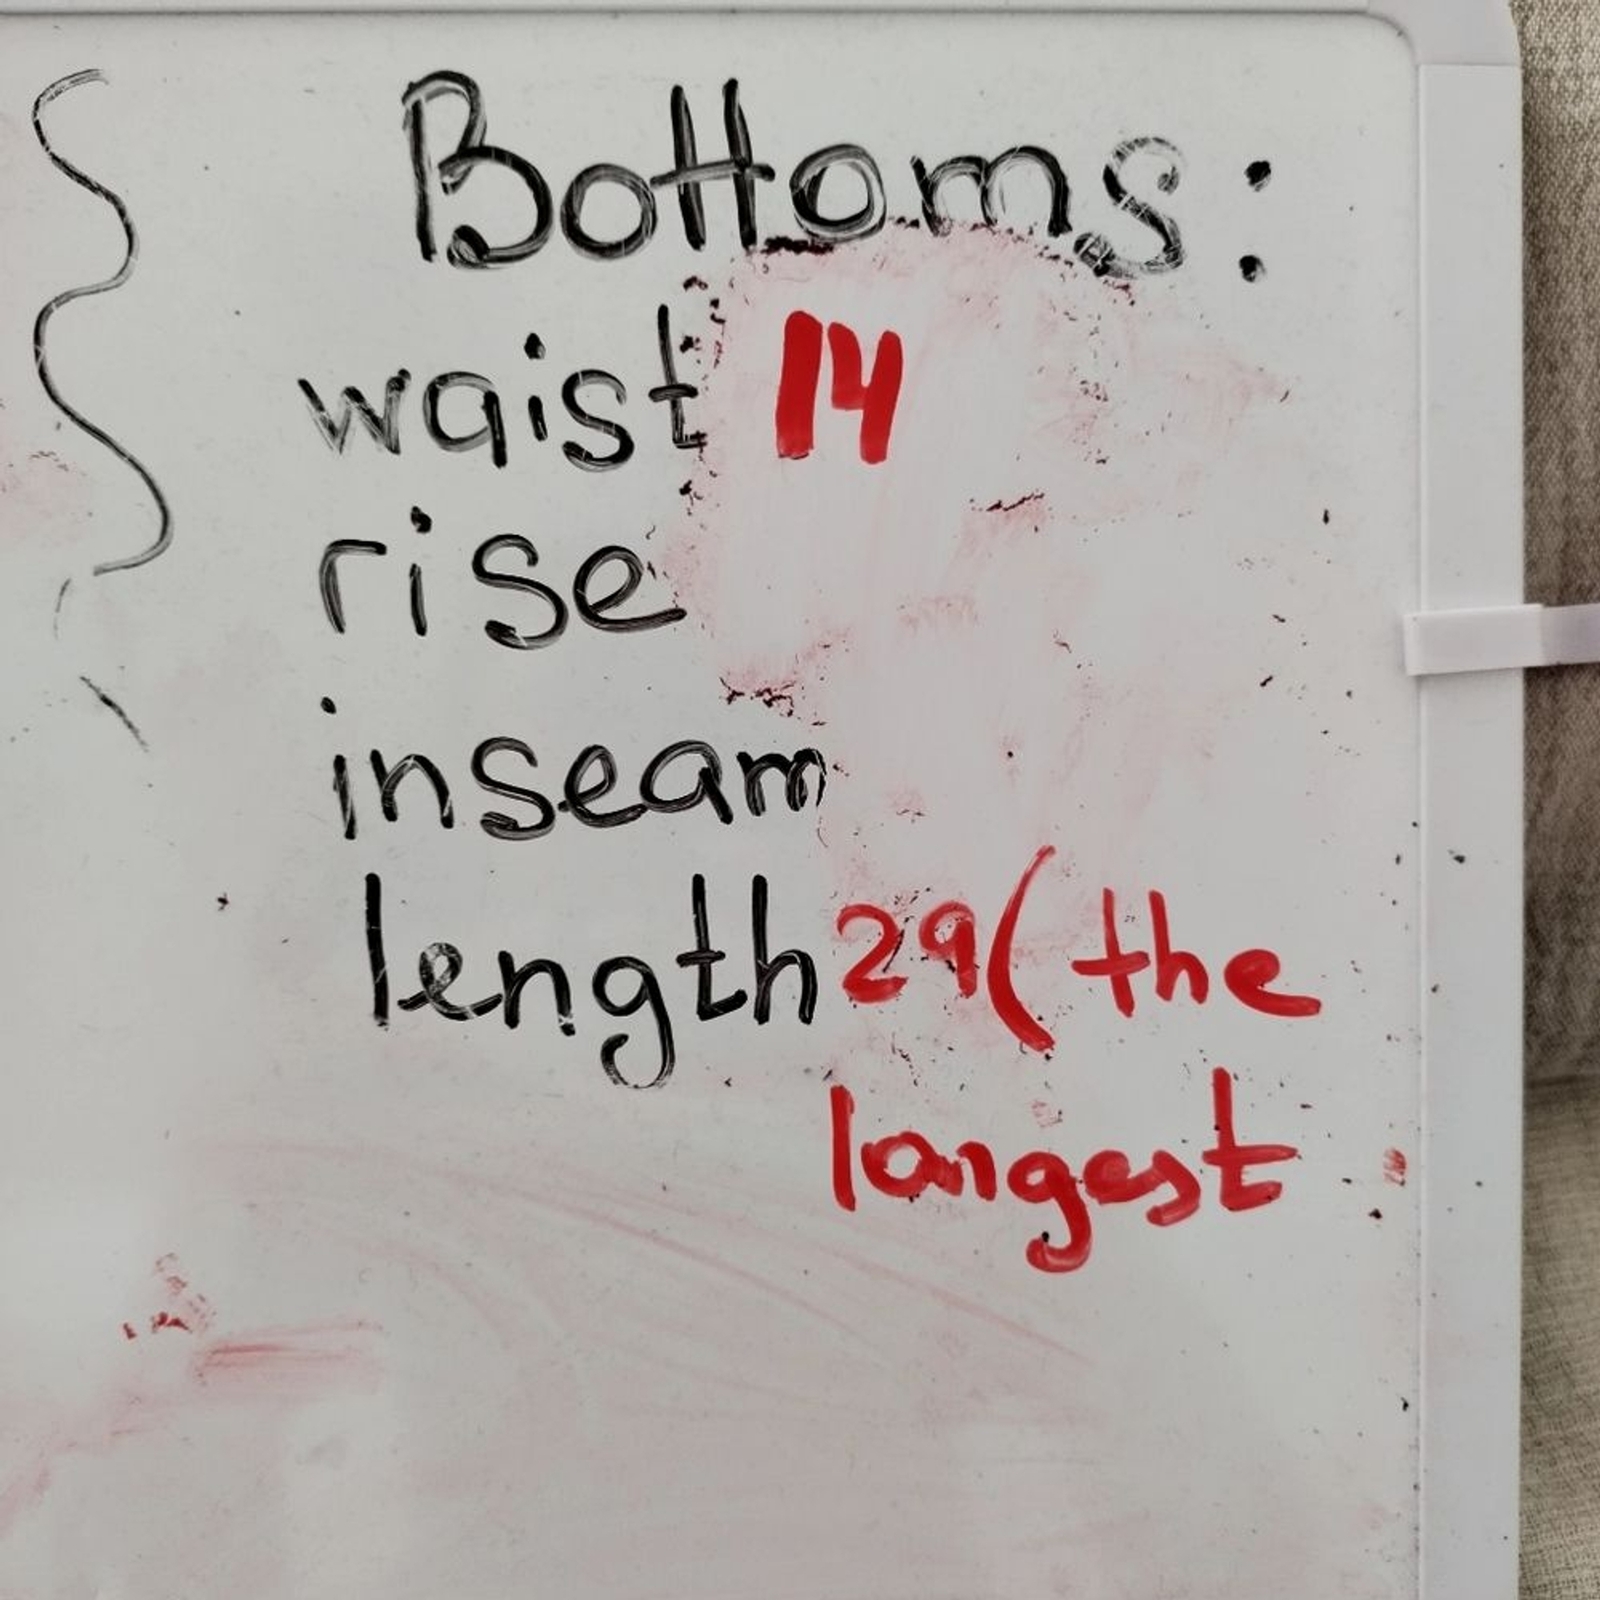 Bottoms:
waist 14
rise
inseam
length 29 (the
longest